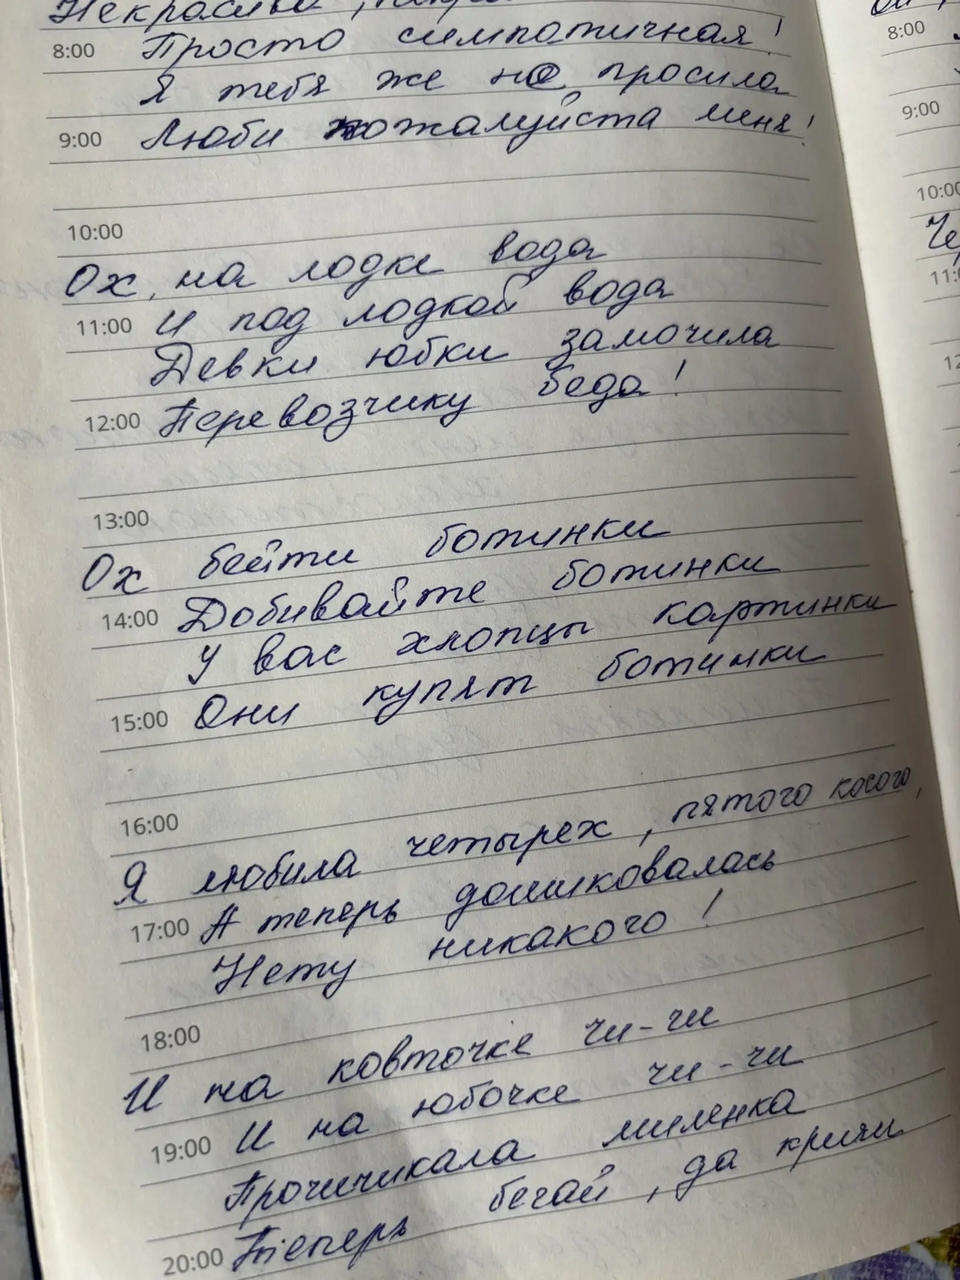 Некрасива,
8:00 Просто симпотичная!
Я тебя же не просила
9:00 Люби пожалуйста меня!
10:00
Ох, на лодке вода
11:00 И под лодкой вода
Девки юбки замочила
12:00 Перевозчику беда!
13:00
Ох бейти ботинки
14:00 Добивайте ботинки
У вас хлопцы картинки
15:00 Они купят ботинки
16:00
Я любила четырех, пятого косого,
17:00 А теперь дошиковалась
Нету никакого!
18:00
И на ковточке чи-чи
19:00 И на юбочке чи-чи
Прочичикала миленка
20:00 Теперь бегай, да кричи
8:00
9:00
10:00